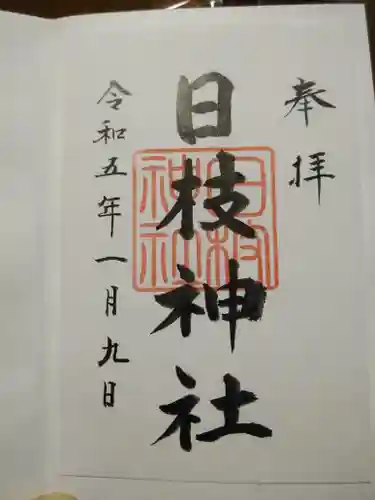 奉拝
日枝神社
日枝神社
令和五年一月九日